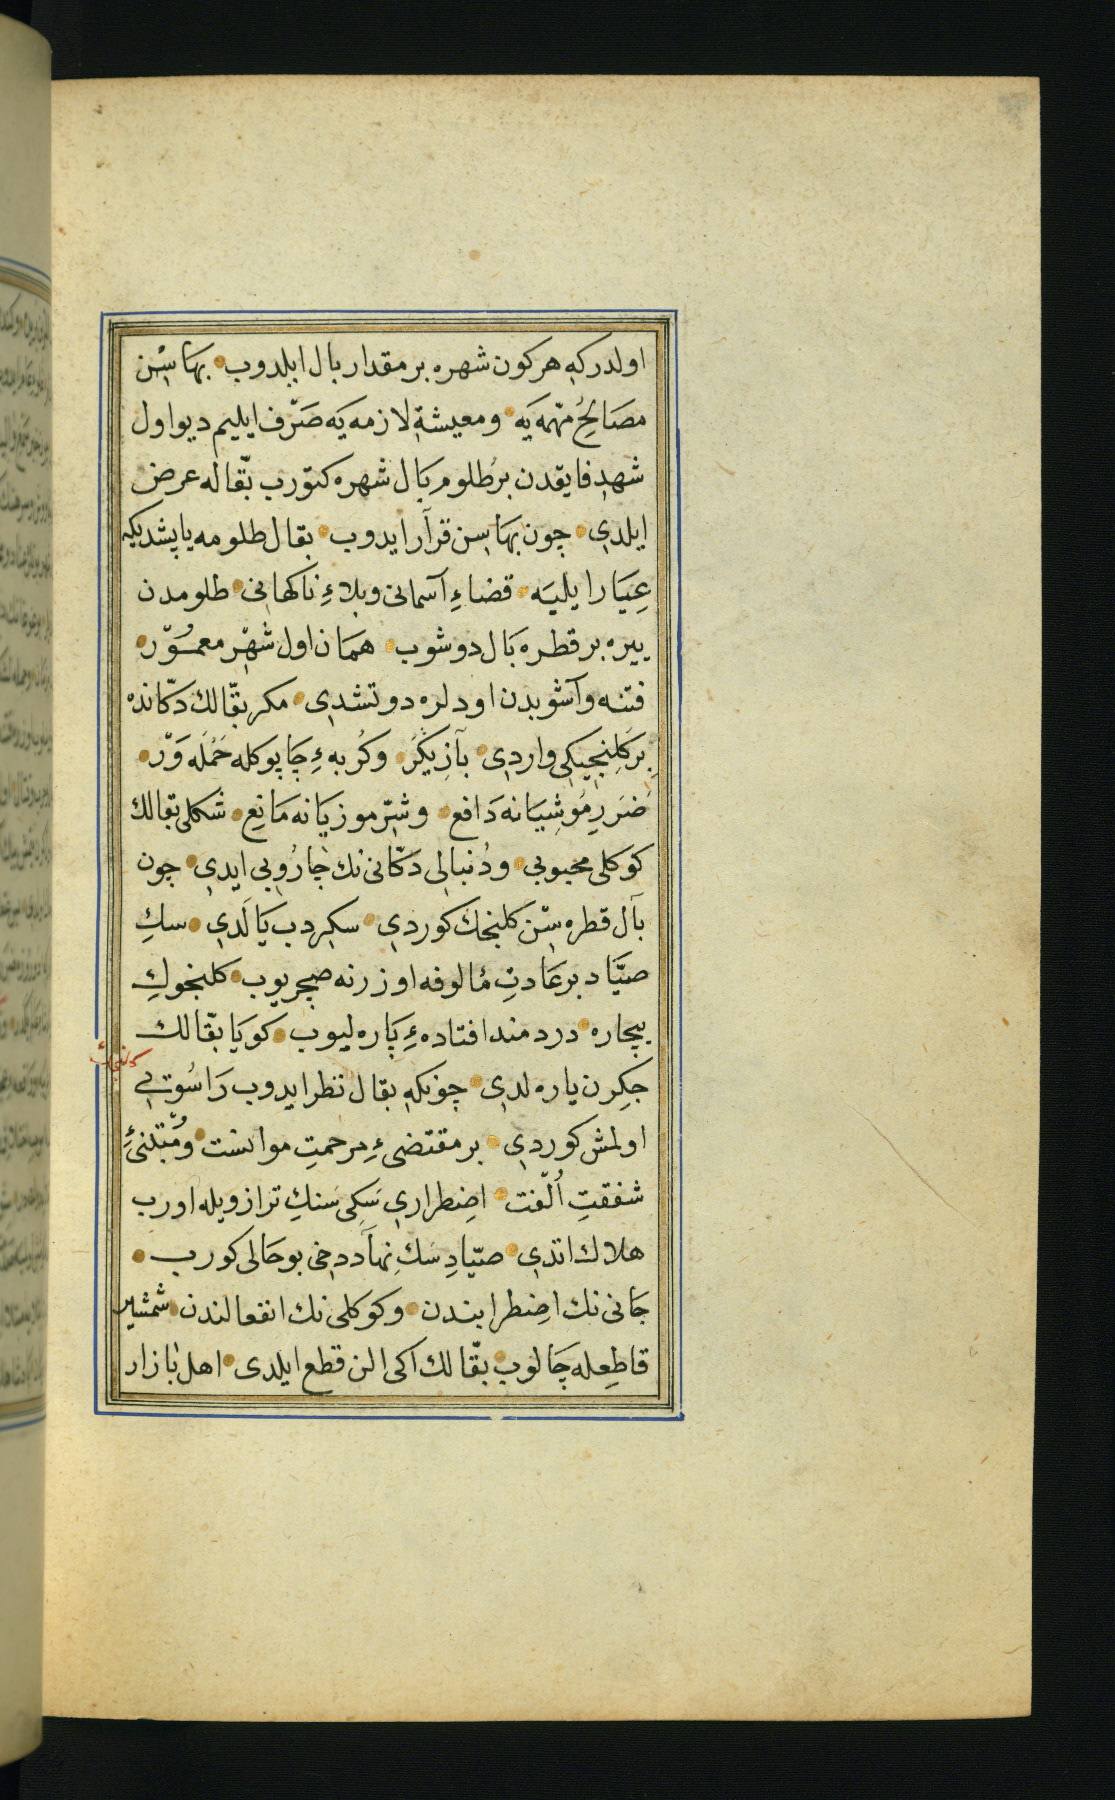 اولدر كه هر كون شهره بر مقدار بال ايلدوب بهاسن
مصالحُ مهمه يه و معيشة لازمه يه صرف ايليم ديو اول
شهد فايقدن بر طلوم بال شهره كتورب بقاله عرض
ايلدي چون بهاسن قرار ايدوب بقال طلومه يا پشديكه
عيار ايليه قضاءِ آسمانى و بلاءِ ناكهانى طلومدن
ييره بر قطره بال دوشوب همان اول شهر معمور
فتنه و آشوبدن اودلره دوتشدي مكر بقالك دكانده
بر كلنجيكى واردي بازيكر و كربهءِ چاپوكله حمله ور
ضرر موشيانه دافع و شر موزيانه مانع شكلى بقالك
كوكلى محبوبى و دنبالى دكانى نك جاروبى ايدي چون
بال قطره سن كلنجك كوردي سكردب يالدي سك
صياد بر عادت مألوفه اوزرنه صچريوب كلنجوك
بيچاره دردمند افتادهءِ پاره ليوب كويا بقالك
جكرن ياره لدي چونكه بقال نظر ايدوب راسوىى
كلنجك
اولمش كوردي بر مقتضىءِ مرحمت موانست و مبتنىءِ
شفقت ألفت اضطراري سكى سنك ترازويله اورب
هلاك اتدي صياد سك نهاد دخى بو حالى كورب
جانى نك اضطرابندن و كوكلى نك انفعالندن شمشير
قاطعله چالوب بقالك اكى الن قطع ايلدى اهل بازار